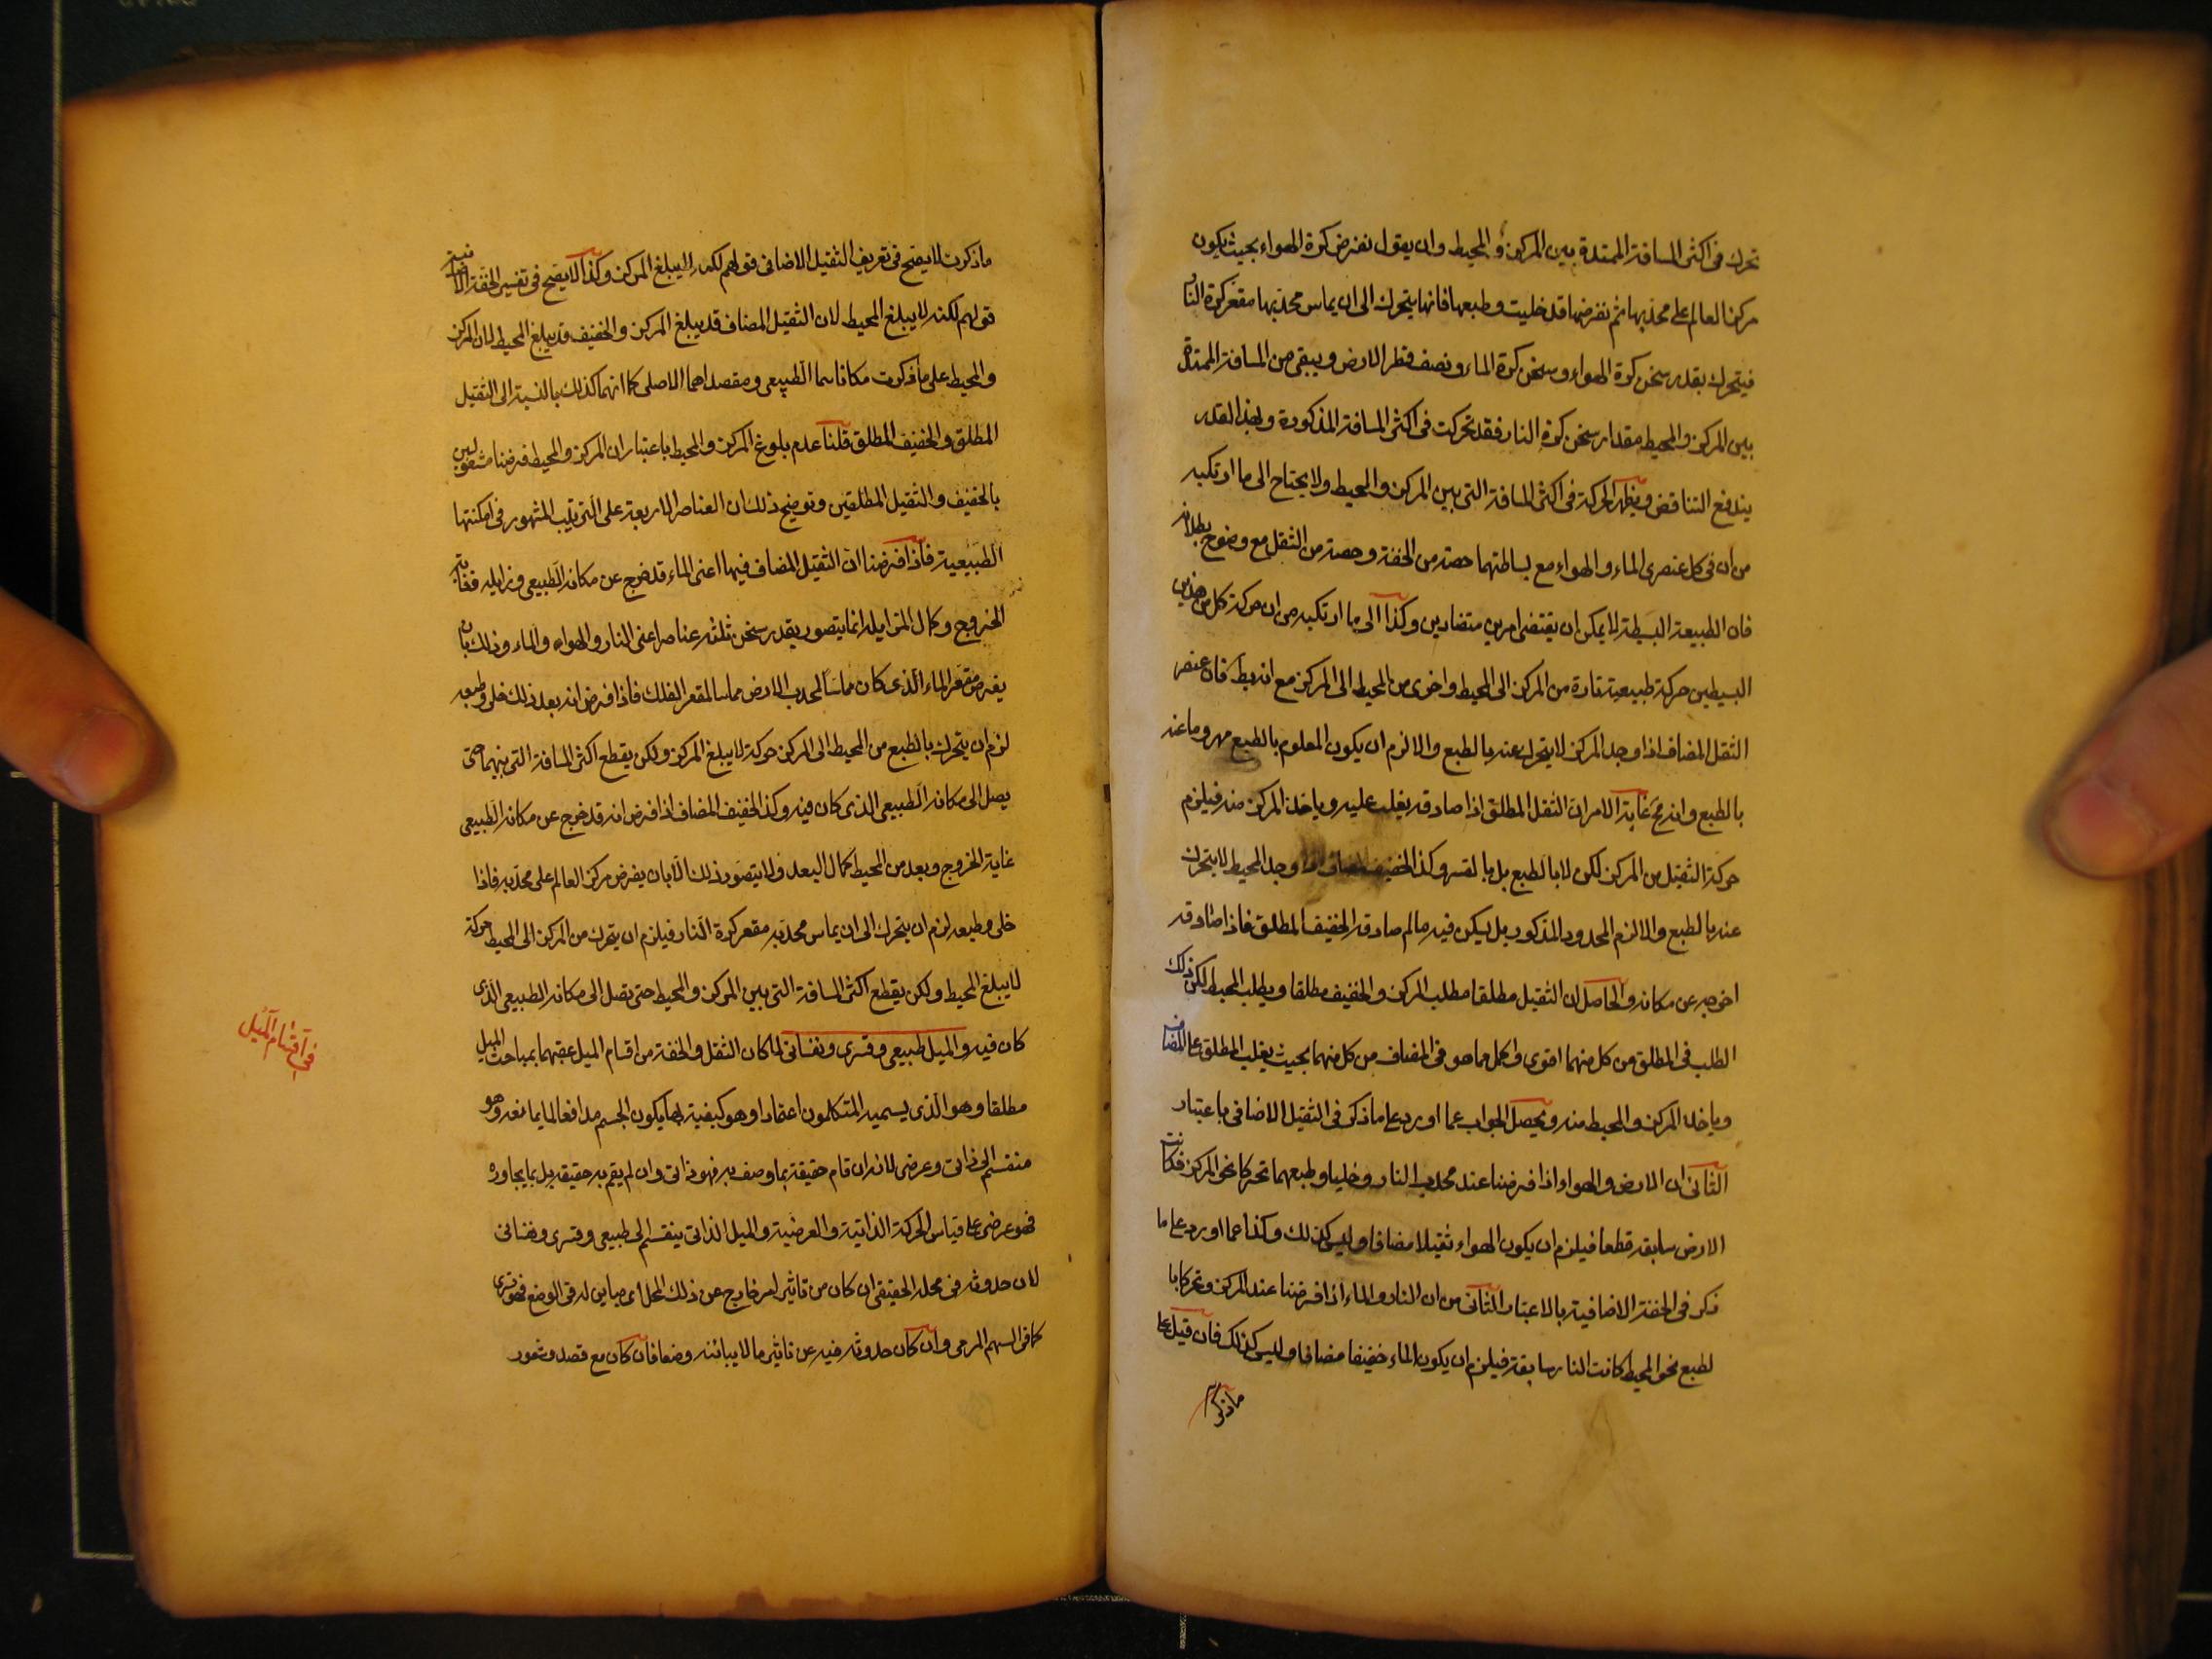 تحرك فى اكثر المسافة الممتدة بين المركز و المحيط وان يقول نفرض كرة الهواء بحيث يكون
مركز العالم على محدبها ثم نفرضها قد خليت وطبعها فانها يتحرك الى ان يماس محدبها مقعر كرة النار
فيتحرك بقدر سخن كرة الهواء وسخن كرة الماء ونصف قطر الارض ويبقى من المسافة الممتدة
بين المركز والمحيط مقدار سخن كرة النار فقد تحركت فى اكثر المسافة المذكورة وبهذا القدر
يندفع التناقض ويظهر الحركة فى اكثر المسافة التى بين المركز والمحيط ولا يحتاج الى ما ارتكبه
من ان فى كل عنصرى الماء والهواء مع بساطتهما حصة من الخفة وحصة من الثقل مع وضوح بطلانه
فان الطبيعة البسيطة لا يمكن ان يقتضى امرين متضادين وكذا الى ما ارتكبه من ان حركة كل من هذين
البسيطين حركة طبيعية تارة من المركز الى المحيط واخرى من المحيط الى المركز مع انه بط فان عنصر
الثقل المضاف اذا وجد المركز لا يتحرك عنه بالطبع والا لزم ان يكون المعلوم بالطبع مهروبا عنه
بالطبع وانه مح غاية الامر ان الثقل المطلق اذا صادقه يغلب عليه وياخذ المركز منه فيلزم
حركة الثقيل من المركز لكن لا بالطبع بل بالقسر وكذا الخفيف المضاف اذا وجد المحيط لا يتحرك
عنه بالطبع والا لزم المحدود المذكور بل يسكن فيه مالم صادقه الخفيف المطلق فاذا صادقه
اخرجه عن مكانه والحاصل ان الثقيل مطلقا مطلب المركز والخفيف مطلقا ويطلب المحيط لكن ذلك
الطلب فى المطلق من كل منهما اقوى واكمل مما هو فى المضاف من كل منهما بحيث يغلب المطلق على المضاف
وياخذ المركز والمحيط منه ويحصل الجواب عما اورد على ما ذكر فى الثقيل الاضافى باعتبار
الثانى ان الارض والهواء اذا فرضنا عند محدب النار وخليا وطبعهما تحركا نحو المركز فكانت
الارض سابقة قطعا فيلزم ان يكون الهواء ثقيلا مضافا وليس كذلك وكذا عما اورد على ما
ذكر فى الخفة الاضافية بالاعتبار الثانى من ان النار والماء اذا فرضتا عند المركز وتحركا با
لطبع نحو المحيط كانت النار سابقة فيلزم ان يكون الماء خفيفا مضافا وليس كذلك فان قيل على
ما ذكر
ما ذكرت لا يصح فى تعريف الثقيل الاضافى قولهم لكنه لا يبلغ المركز وكذا لا يصح فى تفسير الخفة الاضافية
قولهم لكنه لا يبلغ المحيط لان الثقيل المضاف قد يبلغ المركز والخفيف قد يبلغ المحيط لان المركز
والمحيط على ما ذكرت مكاناهما الطبيعى ومقصداهما الاصلى كما انهما كذلك بالنسبة الى الثقيل
المطلق والخفيف المطلق قلنا عدم بلوغ المركز والمحيط باعتبار ان المركز والمحيط فرضنا مشغولين
بالخفيف والثقيل المطلقين وتوضيح ذلك ان العناصر الاربعة على الترتيب المشهور فى امكنتها
الطبيعية فاذا فرضنا ان الثقيل المضاف فيها اعنى الماء قد خرج عن مكانه الطبيعى وزايله فغاية
الخروج وكمال المزايله انما يتصور بقدر سخن ثلثه عناصر اعنى النار والهواء والماء وذلك بان
يفرض مقعر الماء الذى كان مماسا لمحدب الارض مماسا لمقعر الفلك فاذا فرض انه بعد ذلك خلى وطبعه
لزم ان يتحرك بالطبع من المحيط الى المركز حركة لا يبلغ المركز ولكن يقطع اكثر المسافة التى بينهما حتى
يصل الى مكانه الطبيعى الذى كان فيه وكذا الخفيف المضاف اذا فرض انه قد خرج عن مكانه الطبيعى
غاية الخروج وبعد من المحيط كمال البعد ولا يتصور ذلك الا بان يفرض مركز العالم على محدبه فاذا
خلى وطبعه لزم ان يتحرك الى ان يماس محدبه مقعر كرة النار فيلزم ان يتحرك من المركز الى المحيط حركة
لا يبلغ المحيط ولكن يقطع اكثر المسافة التى بين المركز والمحيط حتى تصل الى مكانه الطبيعى الذى
كان فيه والميل طبيعى وقسرى ونفسانى لما كان الثقل والخفة من اقسام الميل عقبهما بمباحث الميل
مطلقا وهو الذى يسميه المتكلمون اعتمادا وهو كيفية بها يكون الجسم مدافعا لما يمانعه وهو
منقسم الى ذاتى وعرضى لانه ان قام حقيقة بما وصف به فهو ذاتى وان لم يقم به حقيقة بل بما يجاوره
فهو عرضى على قياس الحركة الذاتية والعرضية والميل الذاتى ينقسم الى طبيعى وقسرى ونفسانى
لان حدوثه فى محله الحقيقى ان كان من تاثير امر خارج عن ذلك المحل اى مباين له فى الوضع فهو قسرى
كما فى السهم المرمى وان كان حدوثه فيه عن تاثير ما لا يباينه وضعا فان كان مع قصد وشعور
فى اقسام الميل